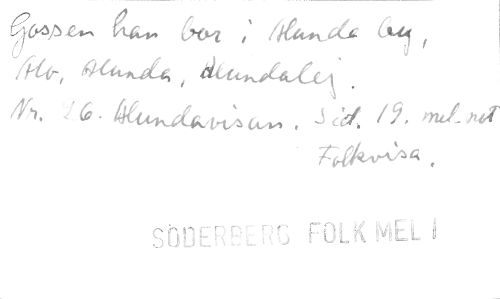 Gossen han bor i Alunda by,
Alv, Alunda, Alundalej.
Nr. 26. Alundavisan. Sid. 19. mel-not
Folkvisa.
SÖDERBERG FOLK MEL I